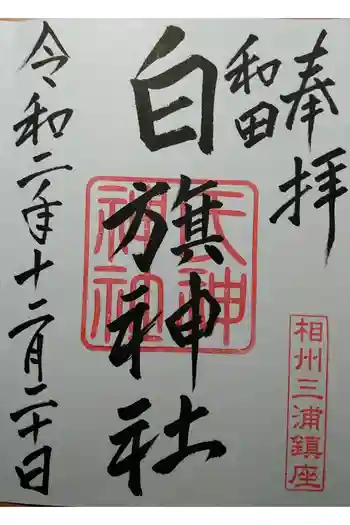 奉拝
和田
白旗神社
天神
神社
相州三浦鎮座
令和二年十二月二十日